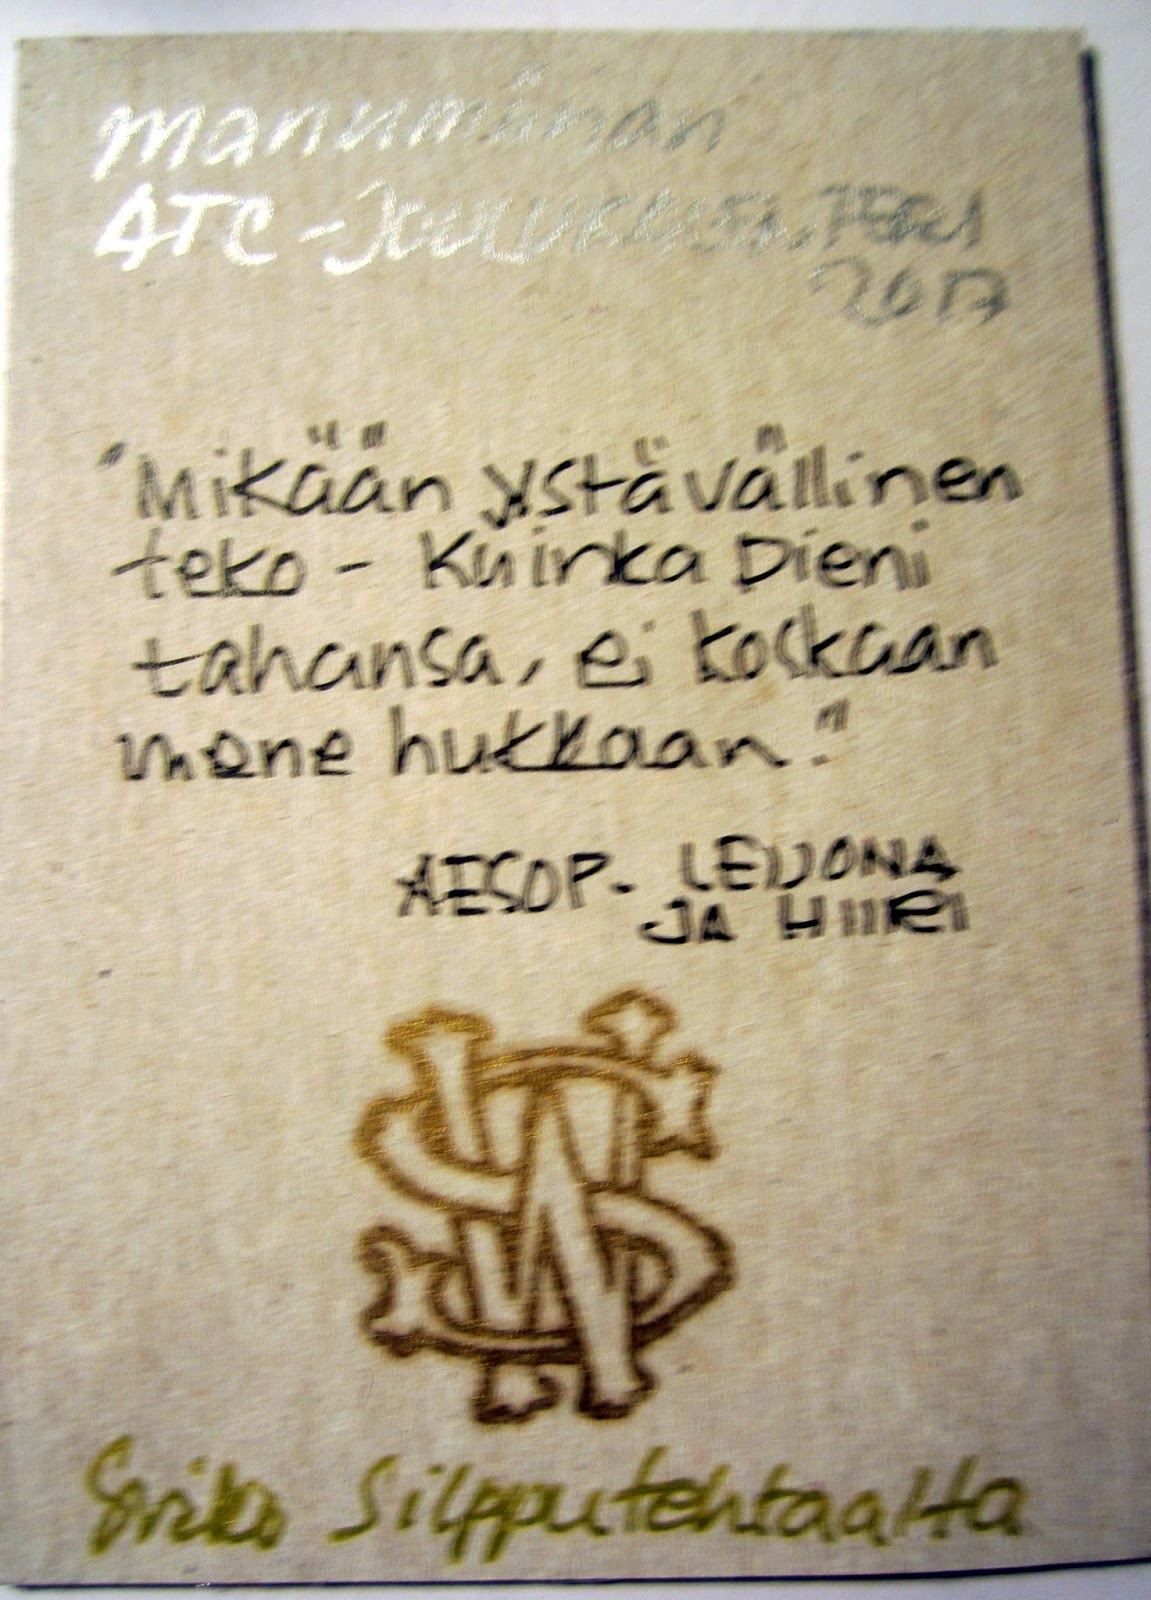 manumiinan
ATC-JOULUKALENTERI
2017
"Mikään ystävällinen
teko - Kuinka pieni
tahansa, ei koskaan
mene hukkaan."
AESOP - LEIJONA
JA HIIRI
Silpputehtaalta